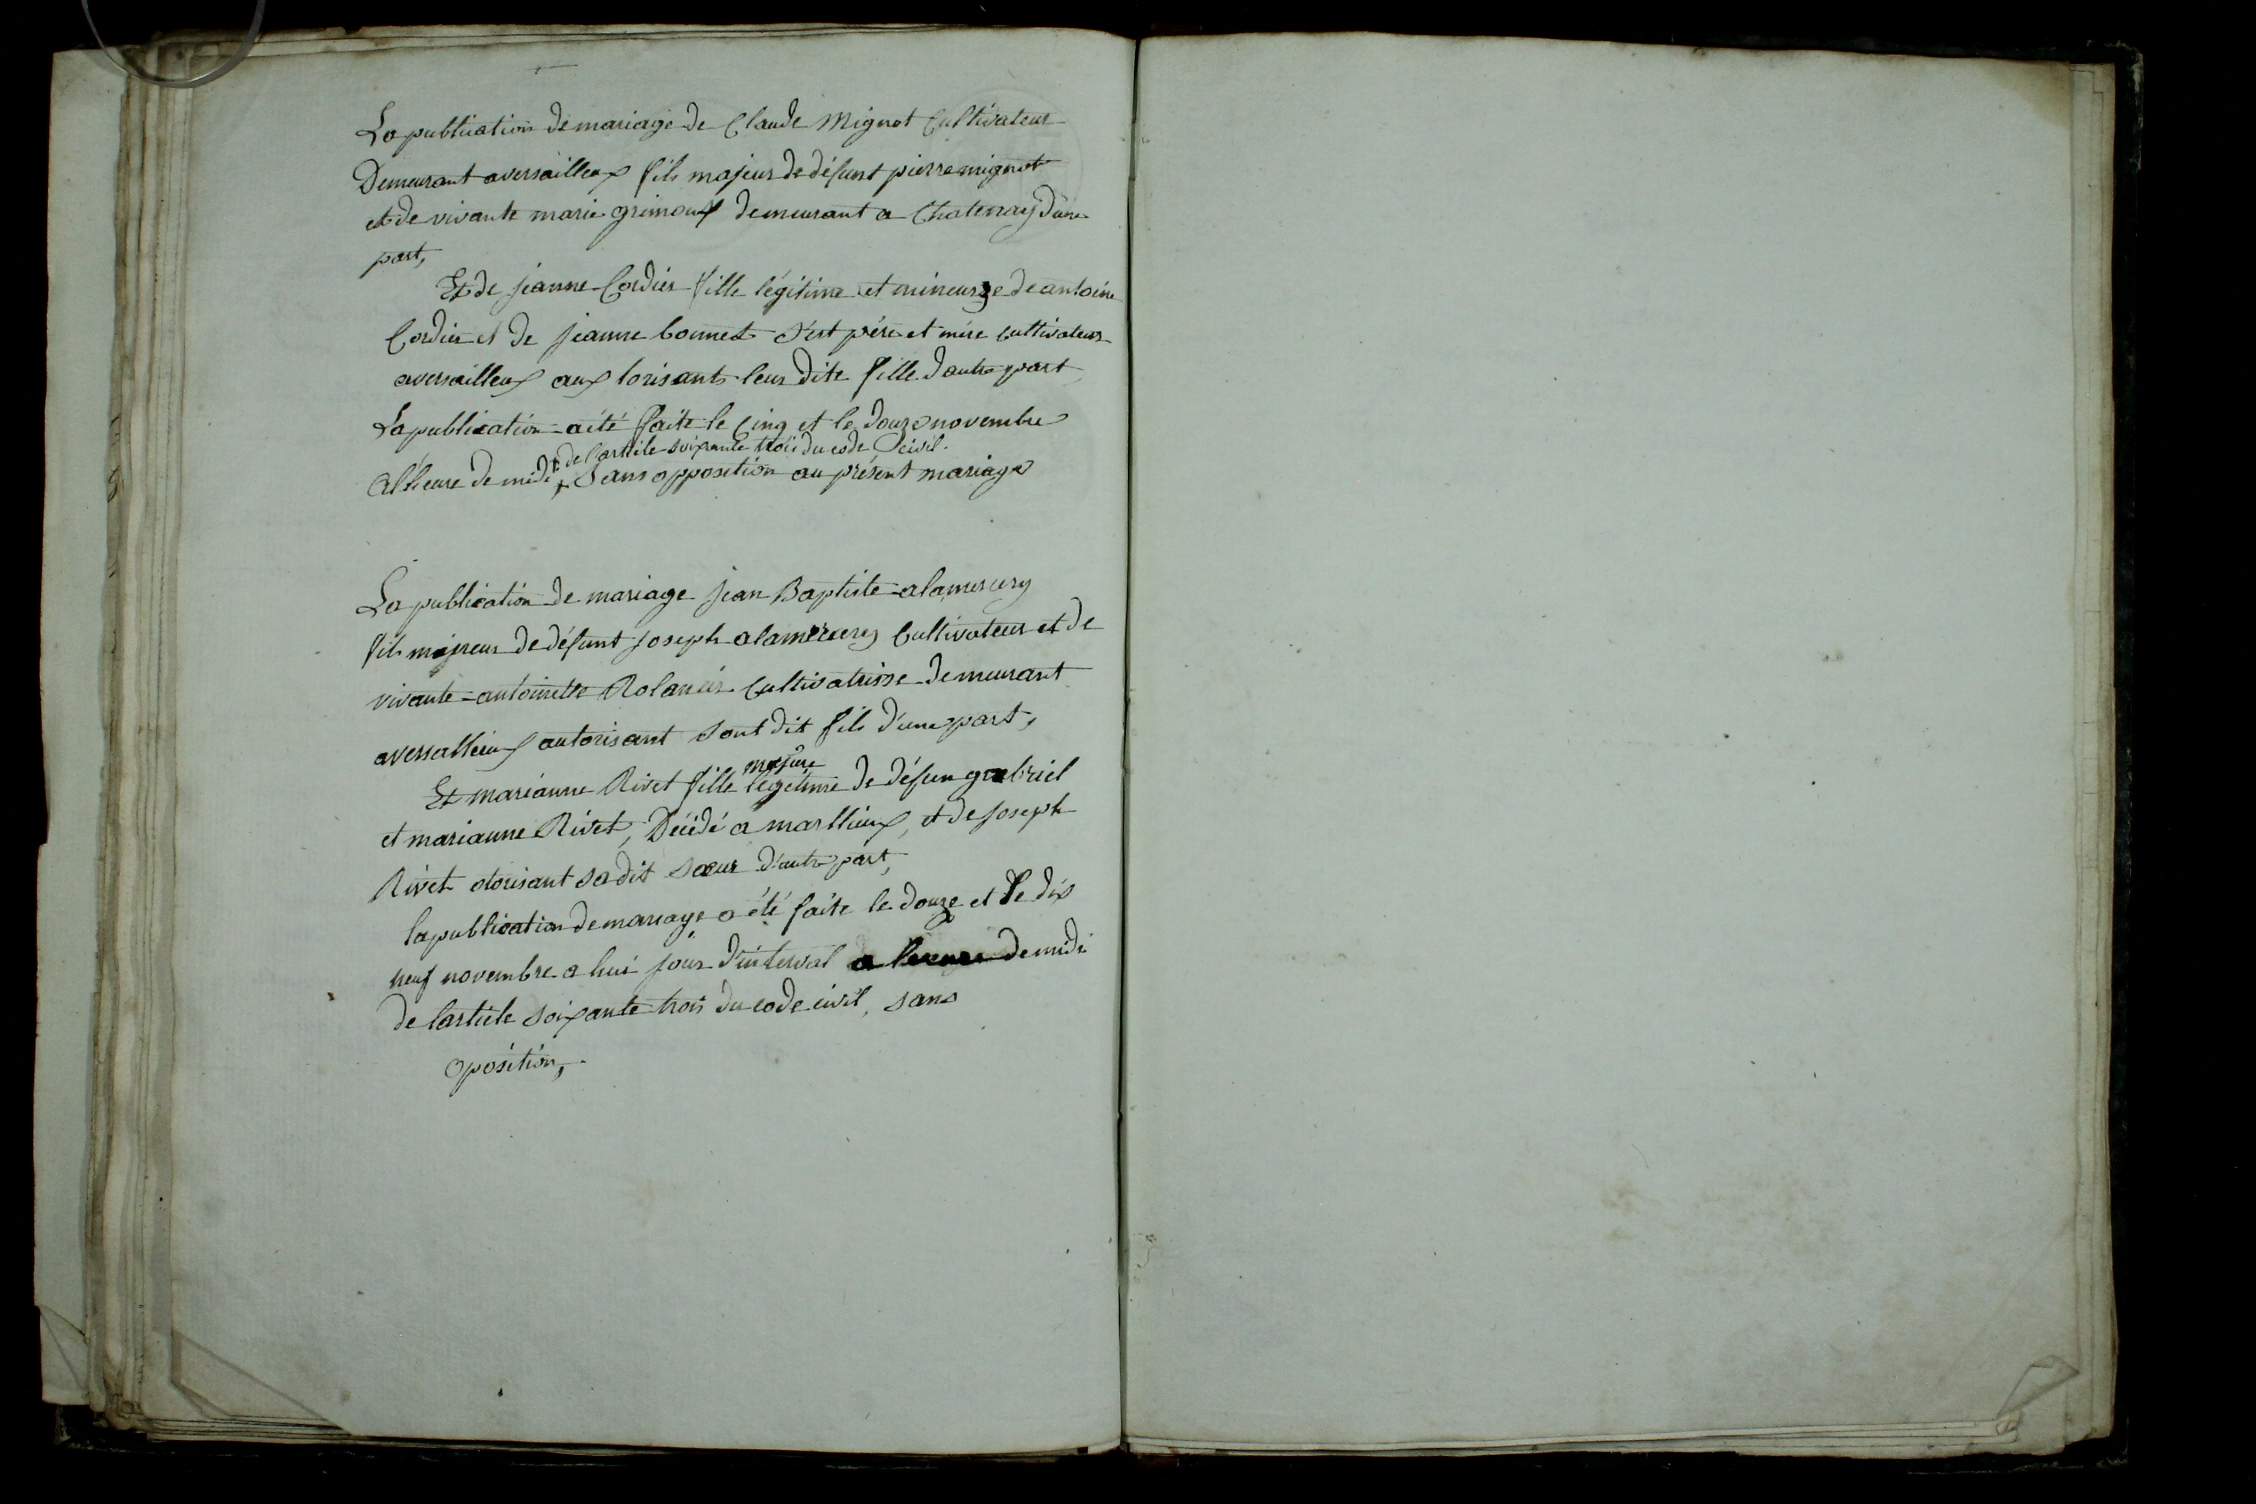 La publication de mariage de Claude Mignot Cultivateur
Demeurant aversailleux fils majeur de défunt pierre mignot
et de vivante marie grimoux demeurant a Chatenay d'une
part,
Et de jeanne Cordier fille légitime et mineurze de antoine
Cordier et de jeanne bonnet s'est pére et mére cultivateur
aversailleux aux torisants leur dite fille d'autre part
La publication a été faite le Cinq et le douze novembre
+ de l'article soixante trois du code civil.
Al'heure de midi + Sans opposition au présent mariage
La publication de mariage jean Baptiste alamercery
fils majeur de défunt joseph alamercery Cultivateur et de
vivante antoinette Cultivatrisse demeurant
aversallieux autorisant sont dit fils d'une part,
majure
Et marianne Rivet fille légitime de défun gabriel
et marianne Rivet, Décédé a marllieux, et de joseph
Rivet otorisant sa dit sœur d'autre part,
la publication de mariage a été faite le douze et le dix
neuf novembre a hui jour d'interval a leeure de midi
de l'article soixante trois du code civil, sans
oposition,